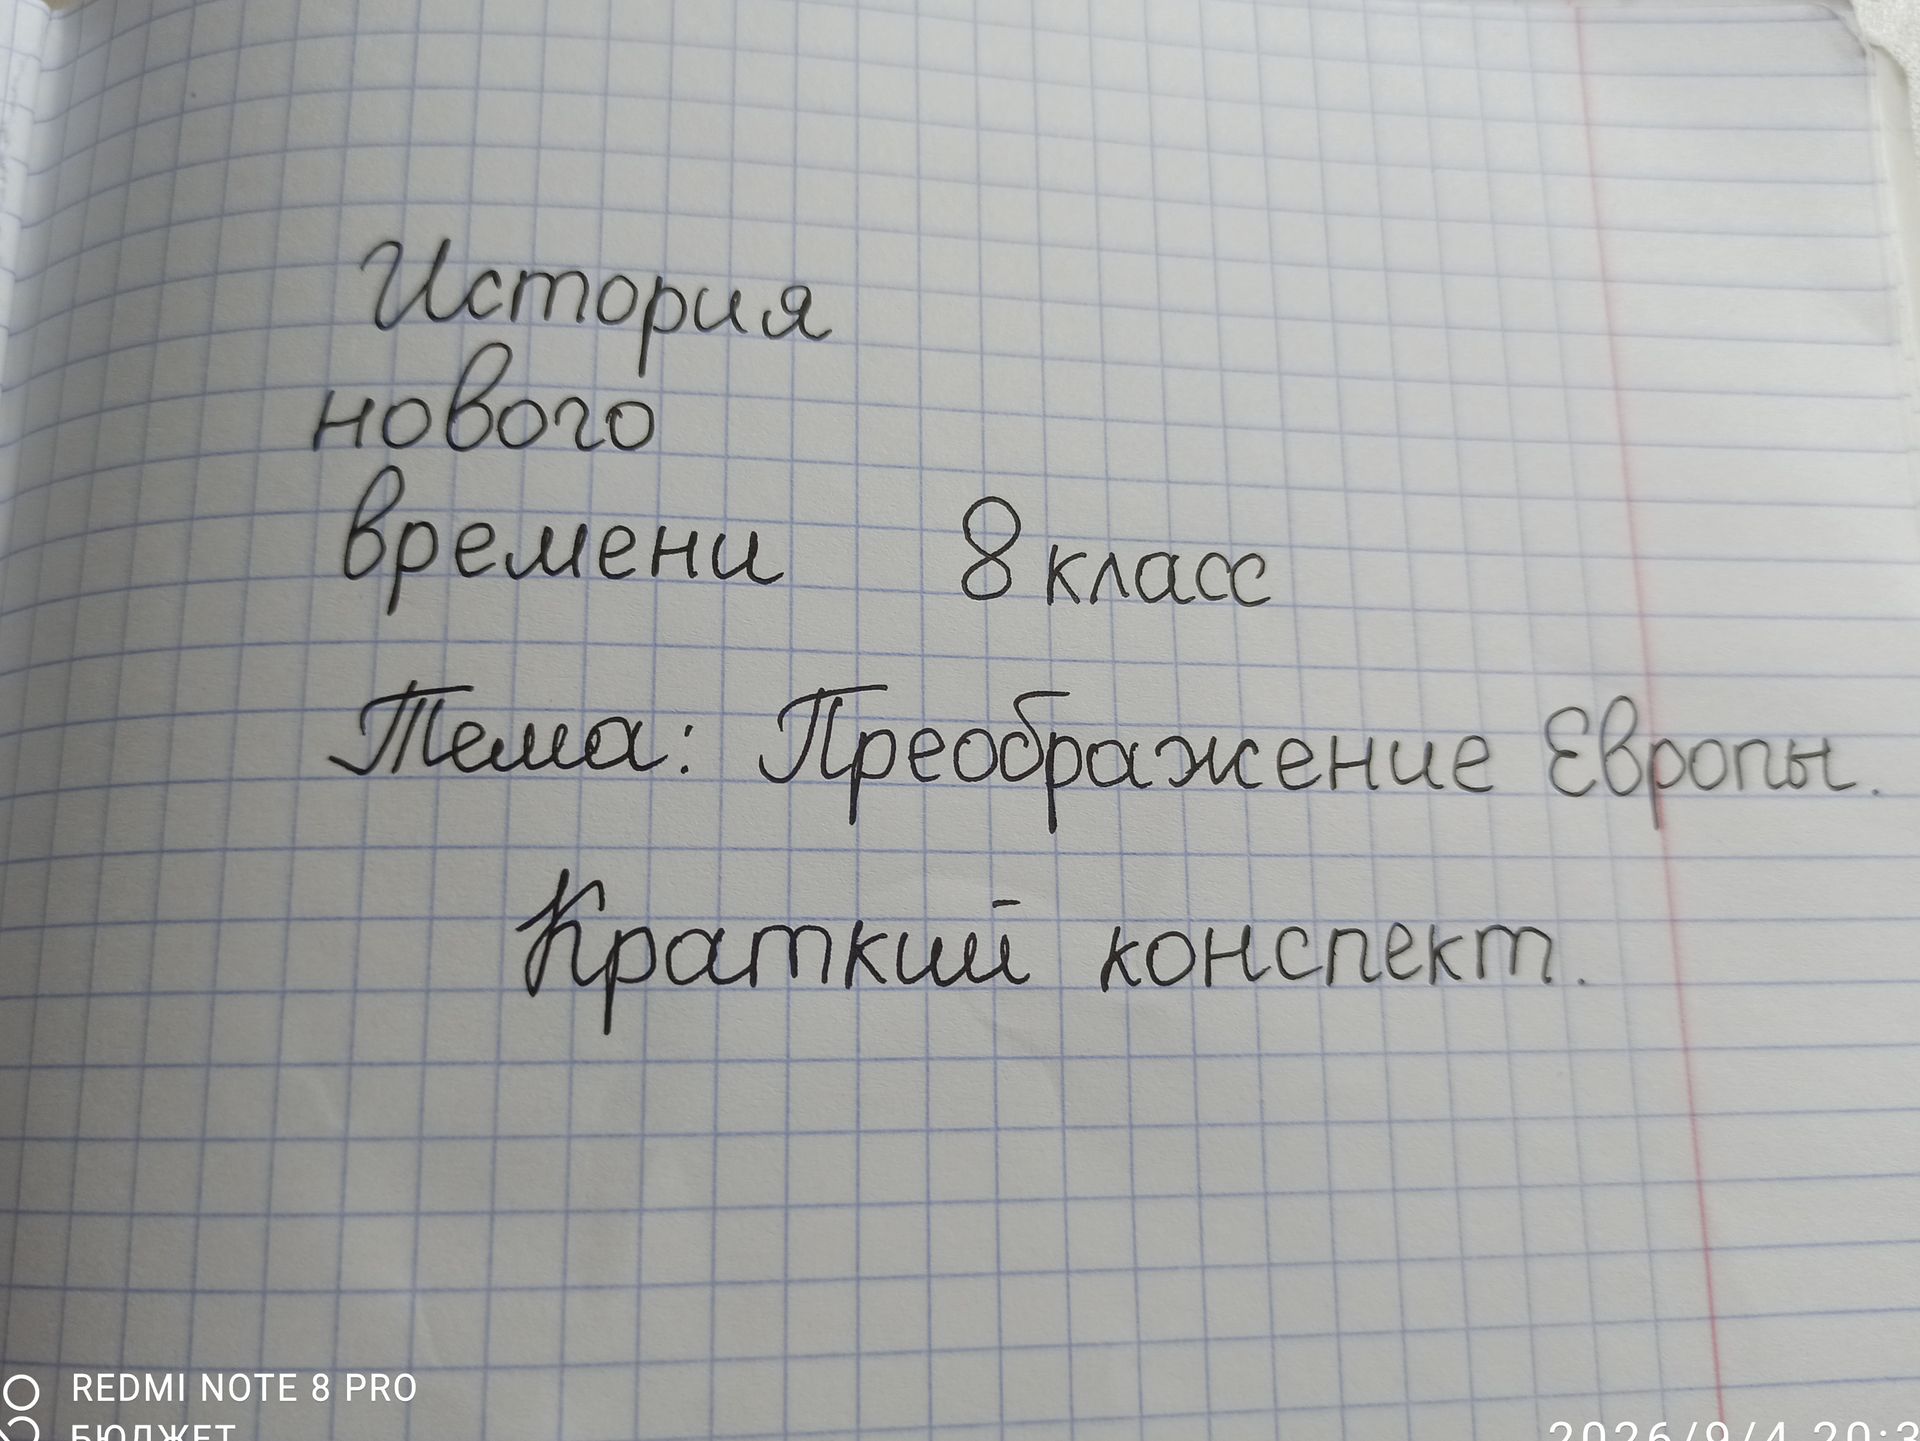 История
нового
времени 8 класс
Тема: Преображение Европы.
Краткий конспект.
REDMI NOTE 8 PRO
БЮДЖЕТ
2026/9/4 20:3